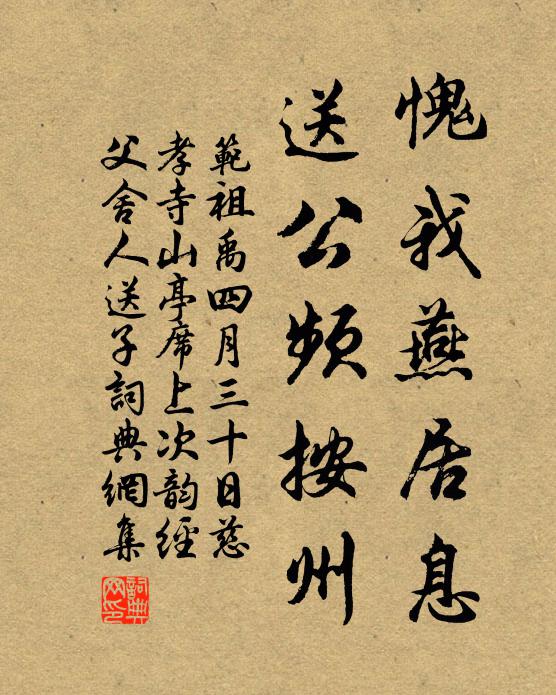 愧我燕居息
送公頻按州
範祖禹四月三十日慈
孝寺山亭席上次韵經
父舍人送子詞典網集
詞典
网印